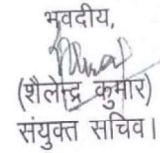 भवदीय,
(शैलेन्द्र कुमार)
संयुक्त सचिव।